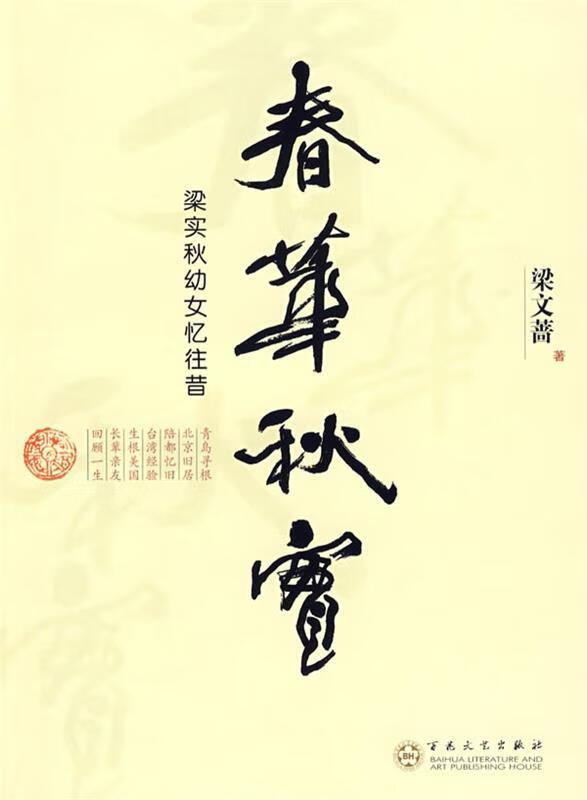 春華秋實
梁实秋幼女忆往昔
梁文蔷
著
青岛寻根
北京旧居
陪都忆旧
台湾经验
生根美国
长辈亲友
回顾一生
百花文艺出版社
BAIHUA LITERATURE AND
ART PUBLISHING HOUSE
BH